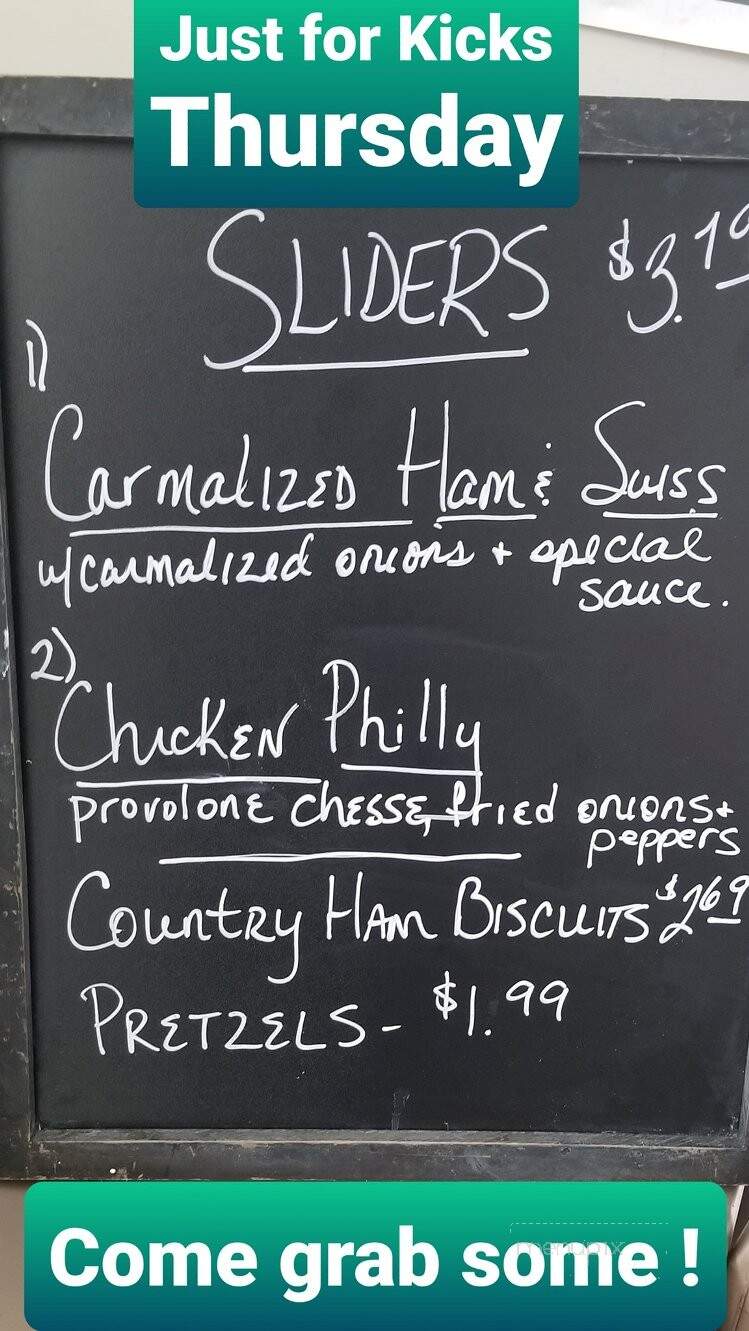 Just for Kicks
Thursday
SLIDERS
1)
CarmalIZED Ham & Swiss
w/carmalized onions + special
sauce.
2)
Chicken Philly
provolone chesse, fried onions +
peppers
Country Ham Biscuits $2.69
PRETZELS - $1.99
Come grab some !